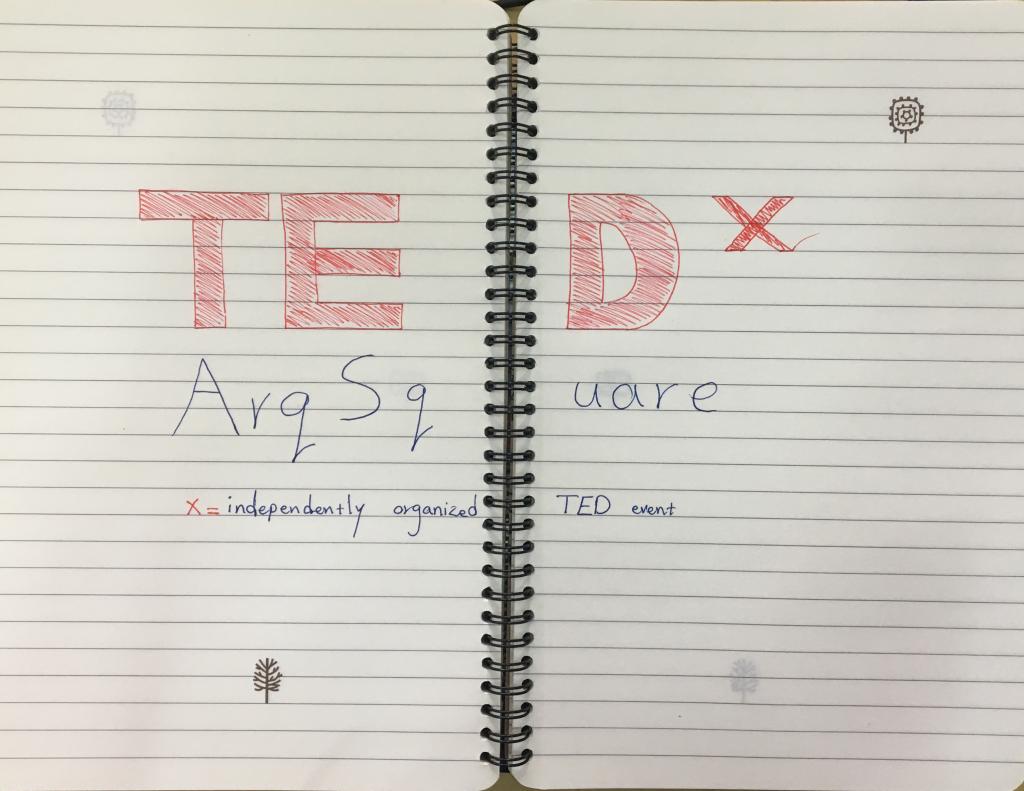 TEDx
ArqSquare
x = independently organized TED event